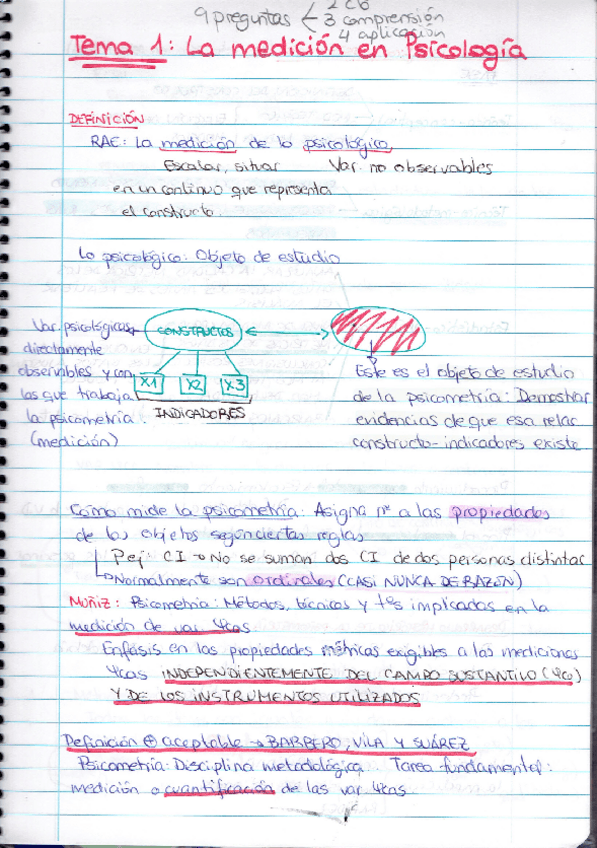 9 preguntas 2 cb
3 comprensión
4 aplicación
Tema 1: La medición en Psicología
DEFINICIÓN
RAE: La medición de lo psicológico
Escalar, situar Var. no observables
en un continuo que representa
el constructo
Lo psicológico: Objeto de estudio
Var. psicológicas
directamente
observables y con
las que trabaja
la psicometría.
(medición)
CONSTRUCTOS
X1 X2 X3
INDICADORES
Este es el objeto de estudio
de la psicometría: Demostrar
evidencias de que esa relac
constructo-indicadores existe
Cómo mide la psicometría: Asigna nº a las propiedades
de los objetos según ciertas reglas
Pej: CI → No se suman dos CI de dos personas distintas
Normalmente son ordinales (CASI NUNCA DE RAZÓN)
Muñiz: Psicometría: Métodos, técnicas y tªs implicadas en la
medición de var. Ψcas
Énfasis en las propiedades métricas exigibles a las mediciones
Ψcas INDEPENDIENTEMENTE DEL CAMPO SUSTANTIVO (Ψco)
Y DE LOS INSTRUMENTOS UTILIZADOS
Definición ⊕ aceptable → BARBERO, VILA Y SUÁREZ
Psicometría: Disciplina metodológica. Tarea fundamental:
medición o cuantificación de las var. Ψcas